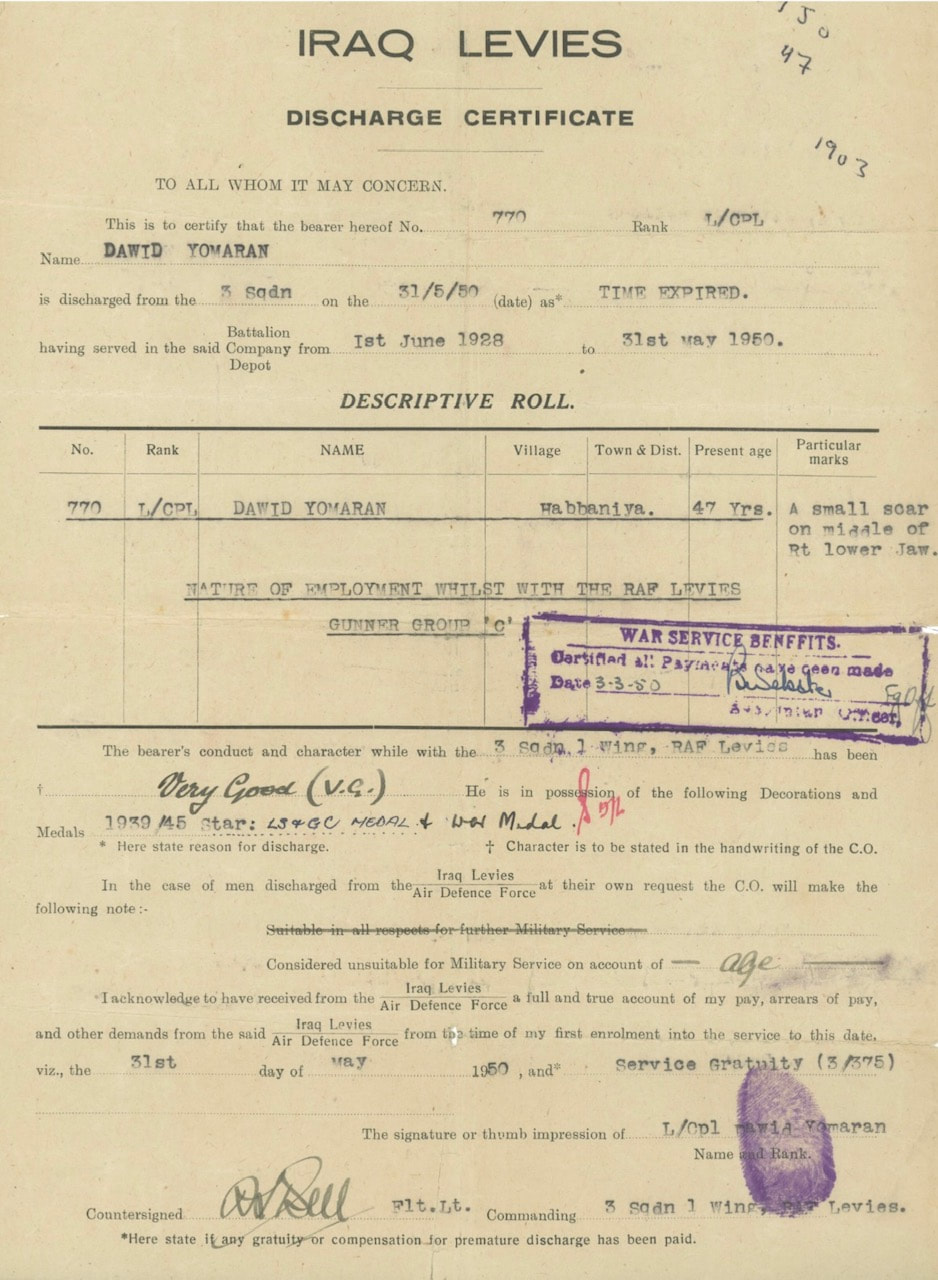 150
47
IRAQ LEVIES
DISCHARGE CERTIFICATE
1903
TO ALL WHOM IT MAY CONCERN.
This is to certify that the bearer hereof No. 770 Rank L/CPL
Name DAWID YOMARAN
is discharged from the 3 Sqdn on the 31/5/50 (date) as* TIME EXPIRED.
having served in the said Battalion Company Depot from Ist June 1928 to 31st May 1950.
DESCRIPTIVE ROLL.
No. Rank NAME Village Town & Dist. Present age Particular marks
770 L/CPL DAWID YOMARAN Habbaniya. 47 Yrs. A small scar
on middle of
Rt lower Jaw.
NATURE OF EMPLOYMENT WHILST WITH THE RAF LEVIES
GUNNER GROUP 'C'
WAR SERVICE BENEFITS.
Certified all Payments have been made
Date 3-3-50
The bearer's conduct and character while with the 3 Sqdn, 1 Wing, RAF Levies has been
† Very Good (V.G.) He is in possession of the following Decorations and
Medals 1939/45 Star: LS & GC MEDAL & War Medal.
* Here state reason for discharge. † Character is to be stated in the handwriting of the C.O.
In the case of men discharged from the Iraq Levies Air Defence Force at their own request the C.O. will make the
following note :-
Suitable in all respects for further Military Service
Considered unsuitable for Military Service on account of — age —
I acknowledge to have received from the Iraq Levies Air Defence Force a full and true account of my pay, arrears of pay,
and other demands from the said Iraq Levies Air Defence Force from the time of my first enrolment into the service to this date.
viz., the 31st day of May 1950, and* Service Gratuity (3/375)
The signature or thumb impression of L/Cpl Dawid Yomaran
Name and Rank.
Countersigned Flt.Lt. Commanding 3 Sqdn 1 Wing, RAF Levies.
*Here state if any gratuity or compensation for premature discharge has been paid.